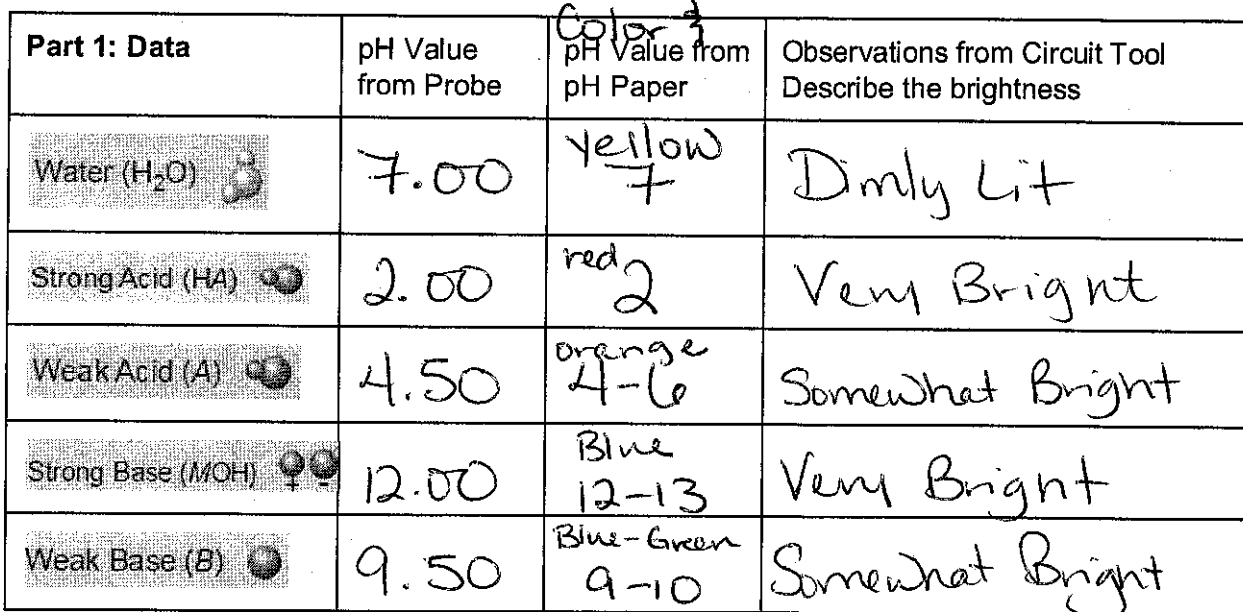 Part 1: Data
pH Value
from Probe
Color &
pH Value from
pH Paper
Observations from Circuit Tool
Describe the brightness
Water (H₂O)
7.00
yellow
7
Dimly Lit
Strong Acid (HA)
2.00
red
2
Very Bright
Weak Acid (A)
4.50
orange
4-6
Somewhat Bright
Strong Base (MOH)
12.00
Blue
12-13
Very Bright
Weak Base (B)
9.50
Blue-Green
9-10
Somewhat Bright